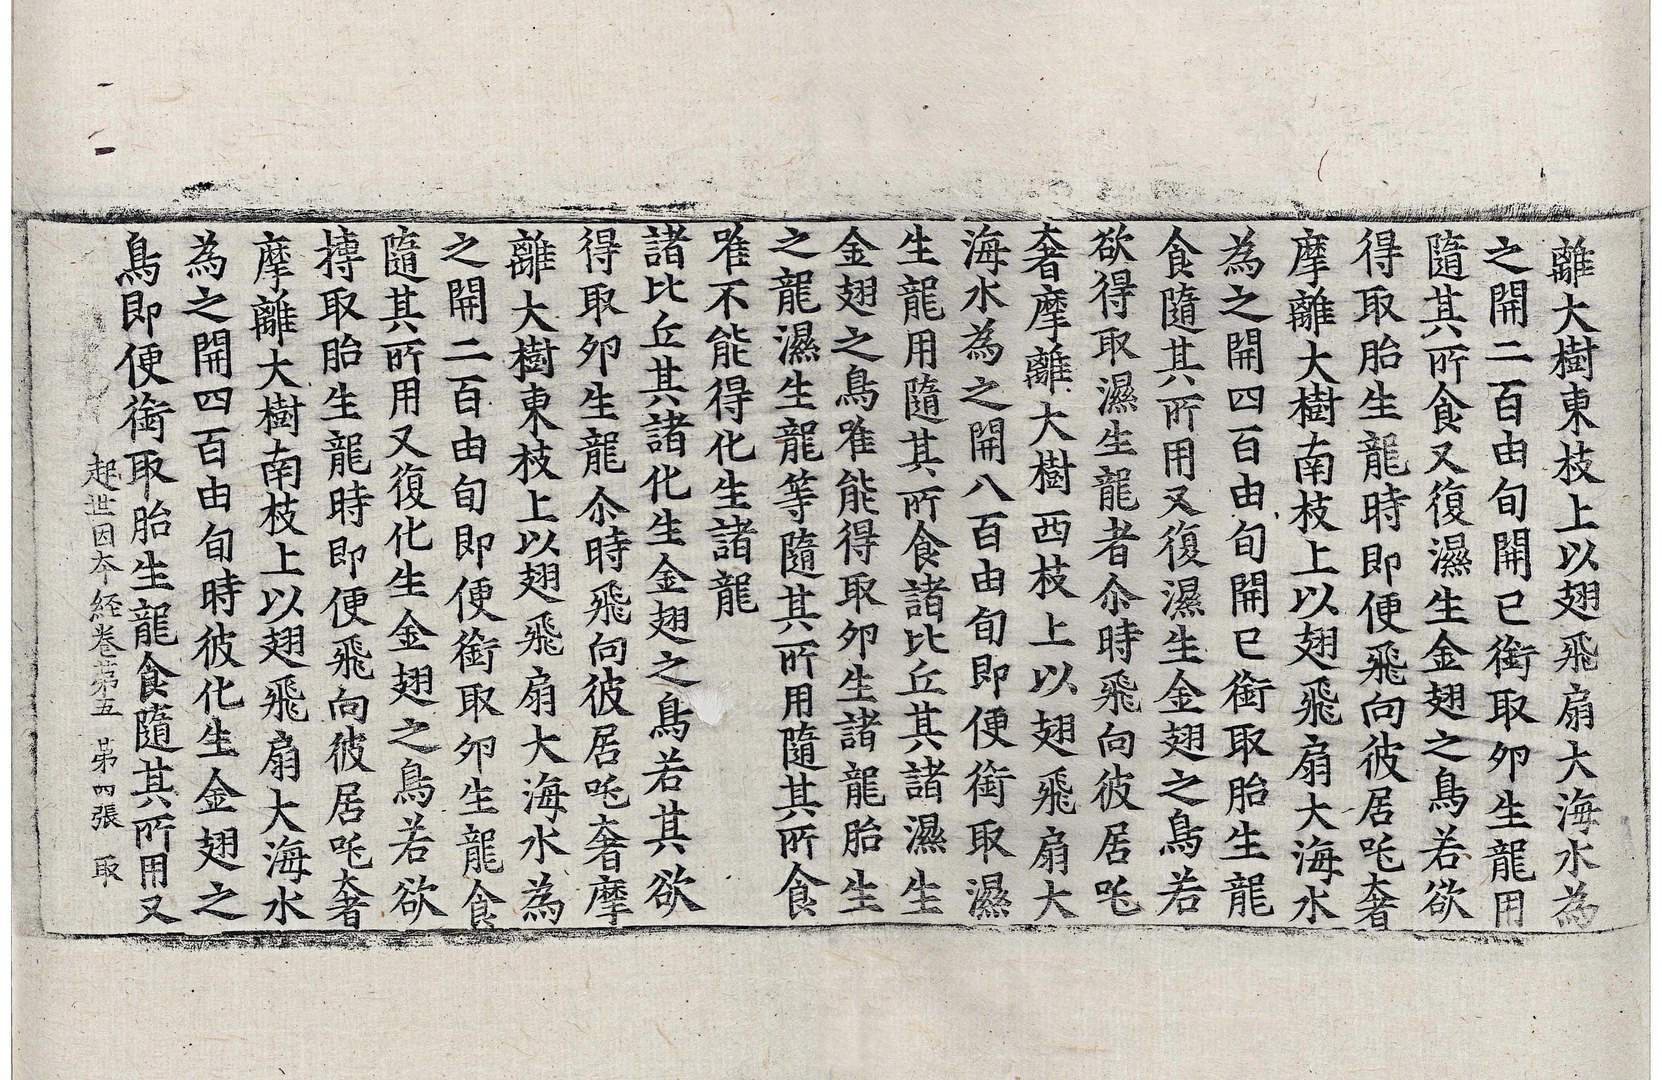 離大樹東枝上以翅飛扇大海水為
之開二百由旬開已銜取卵生龍用
隨其所食又復濕生金翅之鳥若欲
得取胎生龍時即便飛向彼居吒奢
摩離大樹南枝上以翅飛扇大海水
為之開四百由旬開已銜取胎生龍
食隨其所用又復濕生金翅之鳥若
欲得取濕生龍者尒時飛向彼居吒
奢摩離大樹西枝上以翅飛扇大
海水為之開八百由旬即便銜取濕
生龍用隨其所食諸比丘其諸濕生
金翅之鳥唯能得取卵生諸龍胎生
之龍濕生龍等隨其所用隨其所食
唯不能得化生諸龍
諸比丘其諸化生金翅之鳥若其欲
得取卵生龍尒時飛向彼居吒奢摩
離大樹東枝上以翅飛扇大海水為
之開二百由旬即便銜取卵生龍食
隨其所用又復化生金翅之鳥若欲
摶取胎生龍時即便飛向彼居吒奢
摩離大樹南枝上以翅飛扇大海水
為之開四百由旬時彼化生金翅之
鳥即便銜取胎生龍食隨其所用又
起世因本經卷苐五 苐四張 取